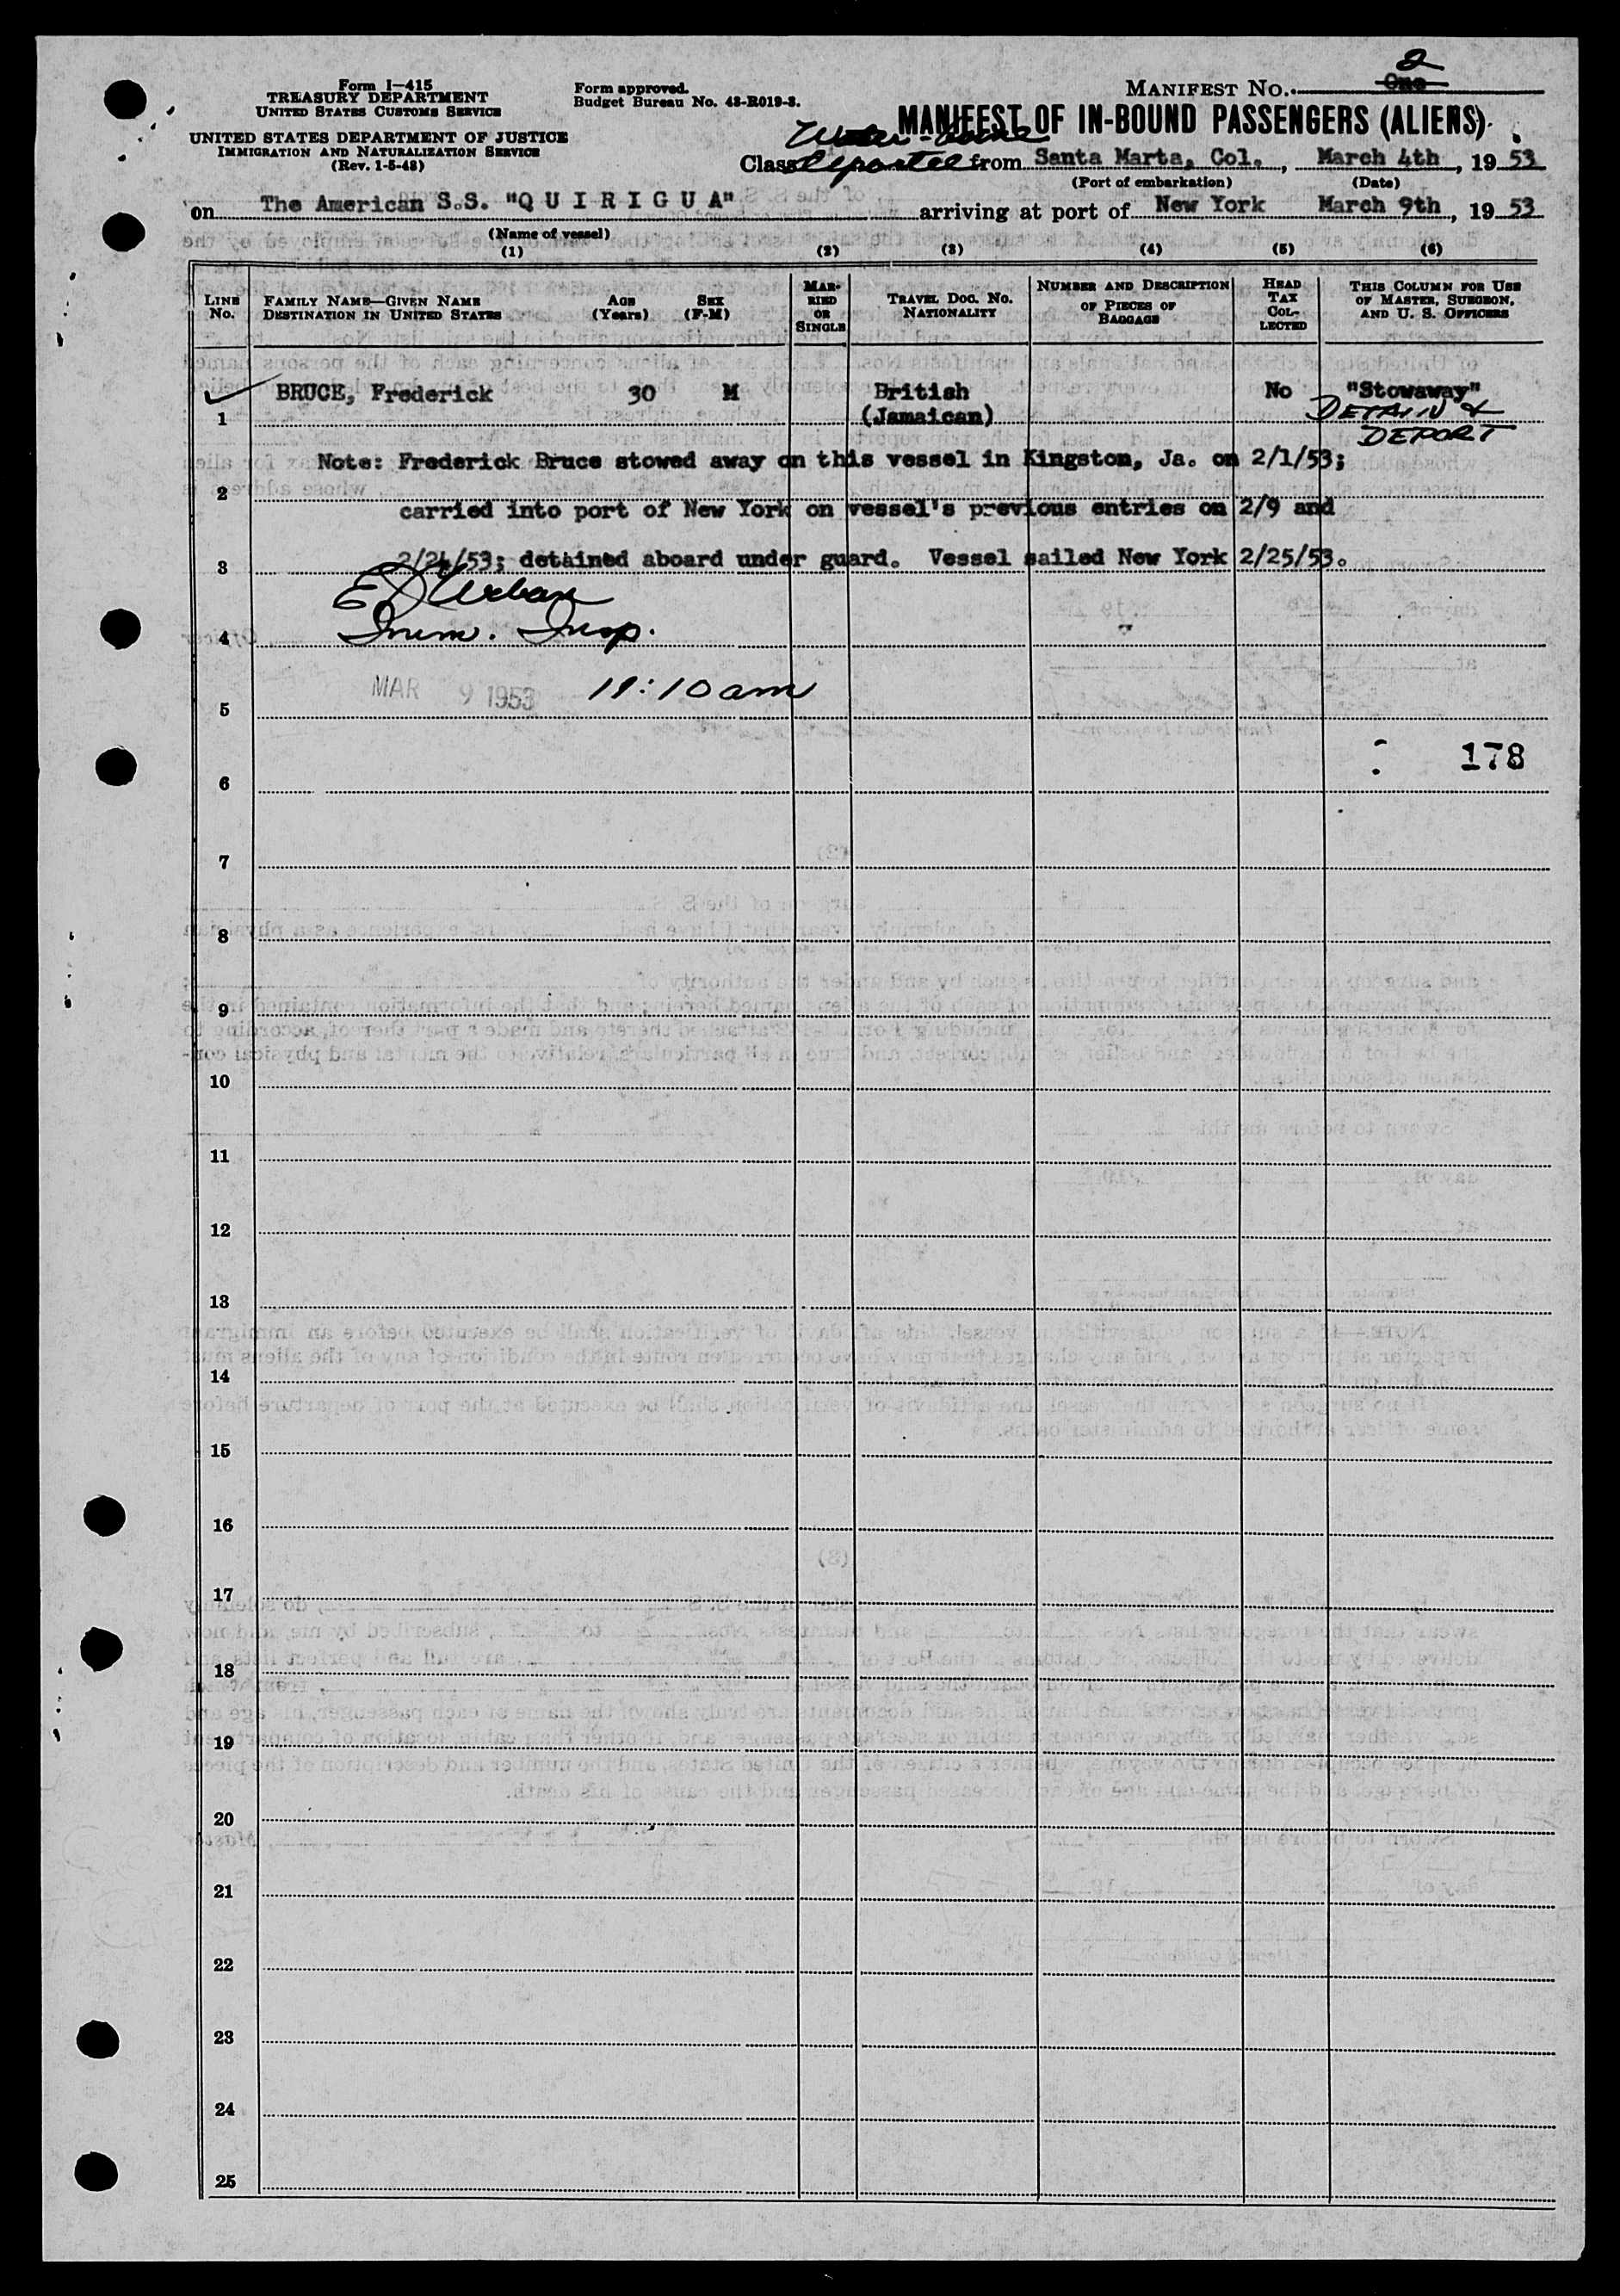 Form I-415
TREASURY DEPARTMENT
UNITED STATES CUSTOMS SERVICE
UNITED STATES DEPARTMENT OF JUSTICE
IMMIGRATION AND NATURALIZATION SERVICE
(Rev. 1-5-48)
Form approved.
Budget Bureau No. 43-R019-3.
2
MANIFEST No. One
MANIFEST OF IN-BOUND PASSENGERS (ALIENS)
Class from Santa Marta, Col., March 4th, 19 53
(Port of embarkation) (Date)
on The American S.S. "Q U I R I G U A" arriving at port of New York March 9th, 19 53
(Name of vessel)
(1) (2) (3) (4) (5) (6)
LINE No. FAMILY NAME—GIVEN NAME DESTINATION IN UNITED STATES AGE (Years) SEX (F-M) MARRIED OR SINGLE TRAVEL DOC. No. NATIONALITY NUMBER AND DESCRIPTION OF PIECES OF BAGGAGE HEAD TAX COLLECTED THIS COLUMN FOR USE OF MASTER, SURGEON, AND U. S. OFFICERS
BRUCE, Frederick 30 M British No "Stowaway"
1 (Jamaican) DETAIN & DEPORT
Note: Frederick Bruce stowed away on this vessel in Kingston, Ja. on 2/1/53;
2
carried into port of New York on vessel's previous entries on 2/9 and
3 2/24/53; detained aboard under guard. Vessel sailed New York 2/25/53.
E D Urban
4 Imm. Insp.
MAR 9 1953 11:10 am
5
178
6
7
8
9
10
11
12
13
14
15
16
17
18
19
20
21
22
23
24
25